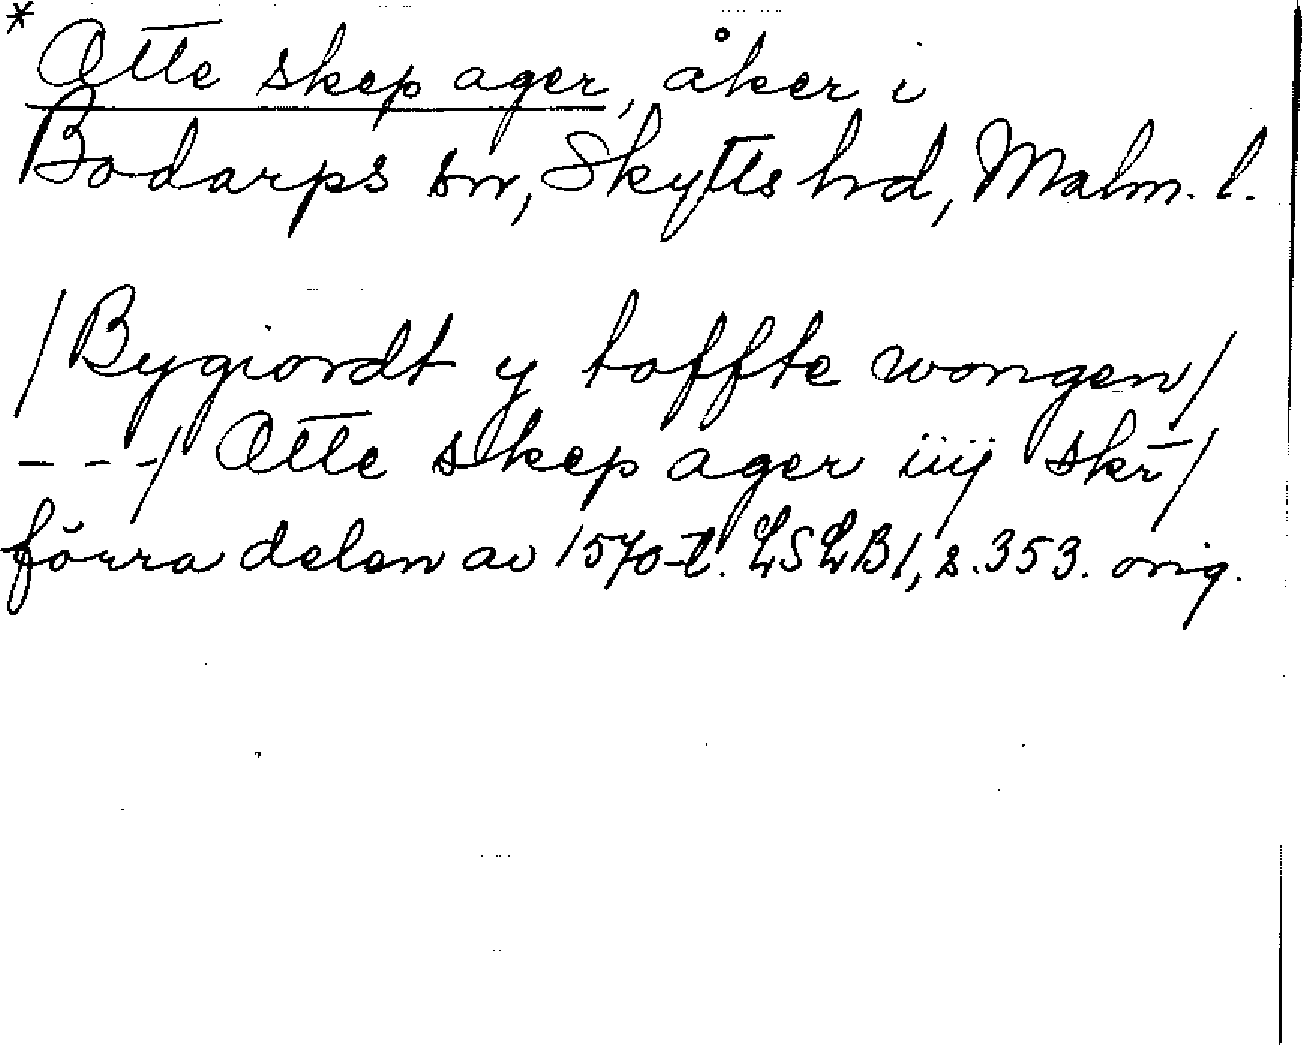 * Otte skep ager, åker i
Bodarps sn, Skytts hd, Malm. l.
/Bygiordt y toffte wongen/
---/ Otte skep ager iiij skr̄/
förra delen av 1570-t. LSLB1, s. 353. orig.